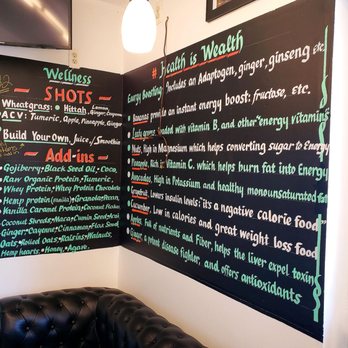 Wellness
SHOTS
Wheatgrass: Hittah, Lemon,
ACV: Tumeric, Apple, Pineapple, Ginger
Build Your Own, Juice/Smoothie
Add-ins
Gojiberry, Black Seed Oil, Coco,
Raw Organic Protein, Tumeric,
Whey Protein, Whey Protein Chocolate
Hemp protein (vanilla), Granola, Pecan,
Vanilla Caramel Protein, Coconut flakes
Coconut Shreds, Maca, Cumin Seeds, Aren
Ginger, Cayenne, Cinnamon, Flax Seed
Oats, Rolled Oats, Raisins, Walnuts,
Hemp hearts, Honey, Agave.
# Health is Wealth
Energy Boosting Includes an Adaptogen, ginger, ginseng etc.
Bananas provide an instant energy boost: fructose, etc.
loaded with vitamin B, and other energy vitamins
Nuts, High in Magnesium which helps converting sugar to Energy
Pineapple, Rich in Vitamin C, which helps burn fat into Energy
Avocados, High in Potassium and healthy monounsaturated fat
Grapefruit, Lowers insulin levels: its a negative calorie food
Cucumber, Low in calories and great weight loss food
Full of nutrients and Fiver, helps the liver expel toxins
Ginger, a proud disease fighter, and offers antioxidants